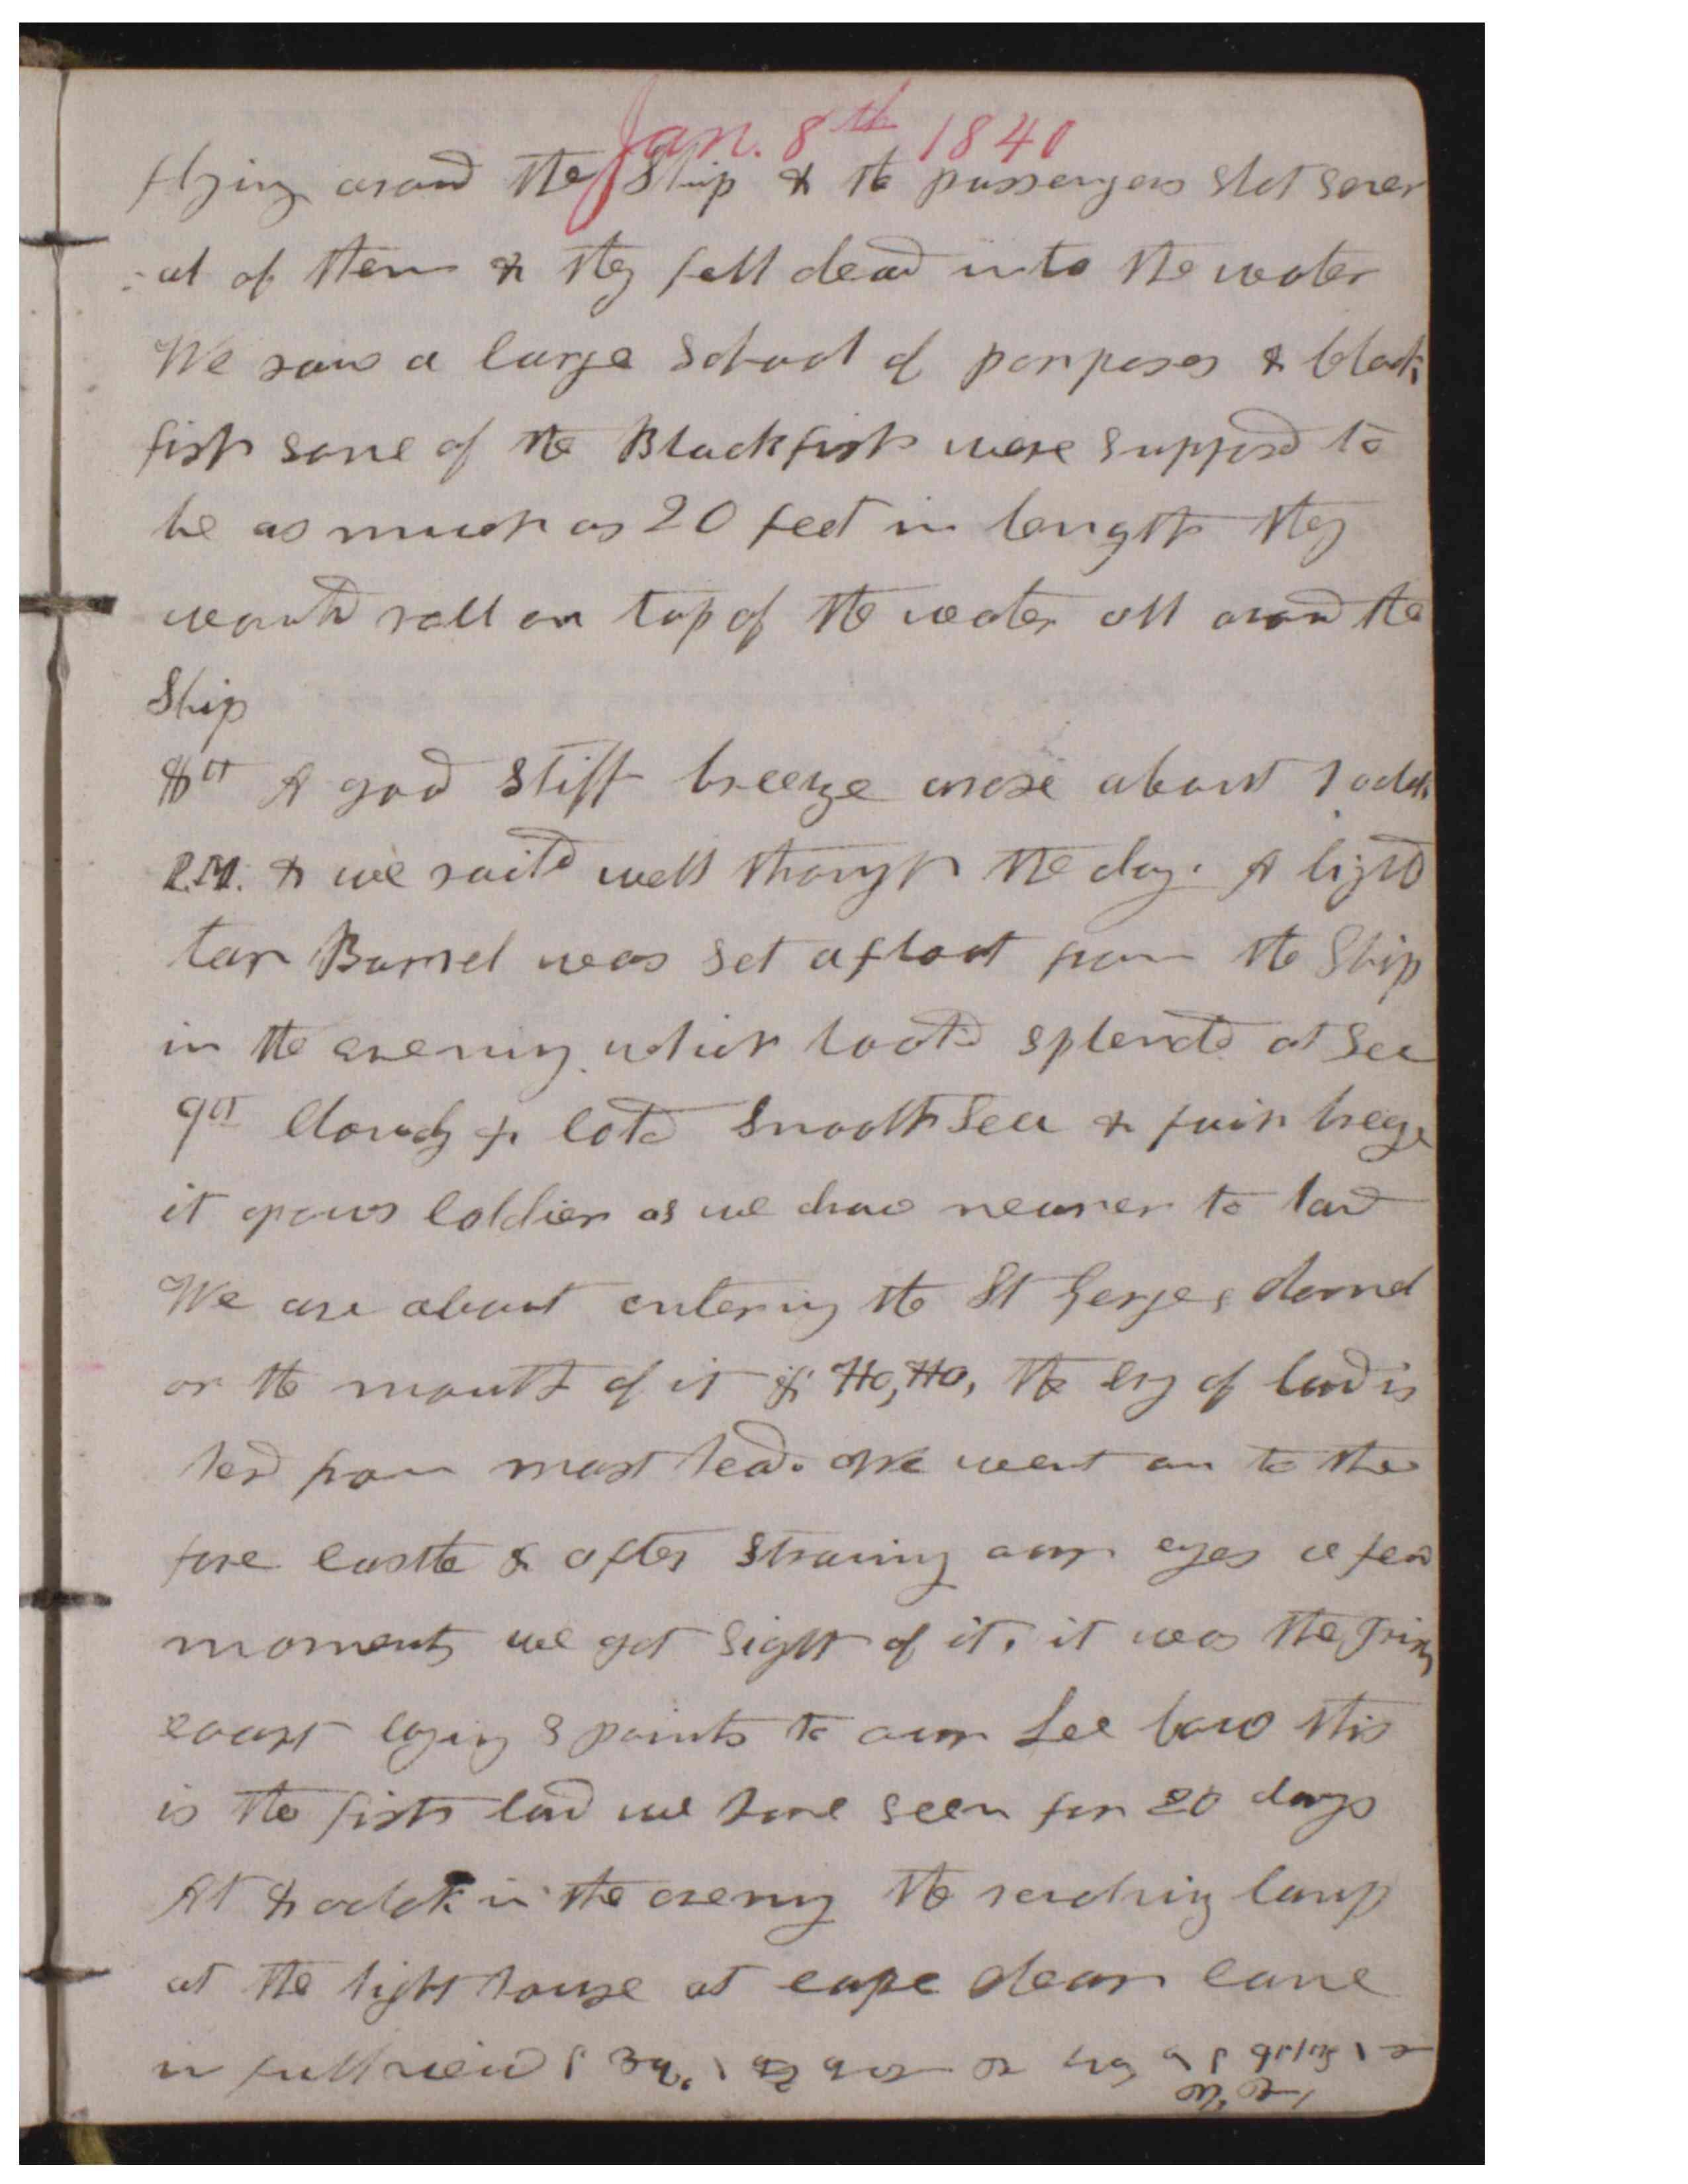 Jan. 8th 1840
flying around the Ship & the passengers shot sever
-al of them & they fell dead into the water
We saw a large School of porposes & black
fish some of the Blackfish were supposd to
be as much as 20 feet in length they
would roll on top of the water all around the
Ship
8th A good stiff breeze arose about 1 oclck
P.M. & we saild well through the day. A lightd
tar Barrel was set afloat from the Ship
in the evening which lookd splendd at Sea
9th Cloudy & cold Smooth Sea & fair breeze
it grows Coldier as we draw nearer to land
We are about entering the St Gerges channel
or the mouth of it Ho, Ho, the cry of land is
herd from mast head. We went on to the
fore castle & after straning our eyes a few
moments we got sight of it. it was the Irish
coast lying 3 points to our Lee bow this
is the first land we have seen for 20 days
At oclck in the evening the revolving lamp
at the light house at cape clear came
in full view